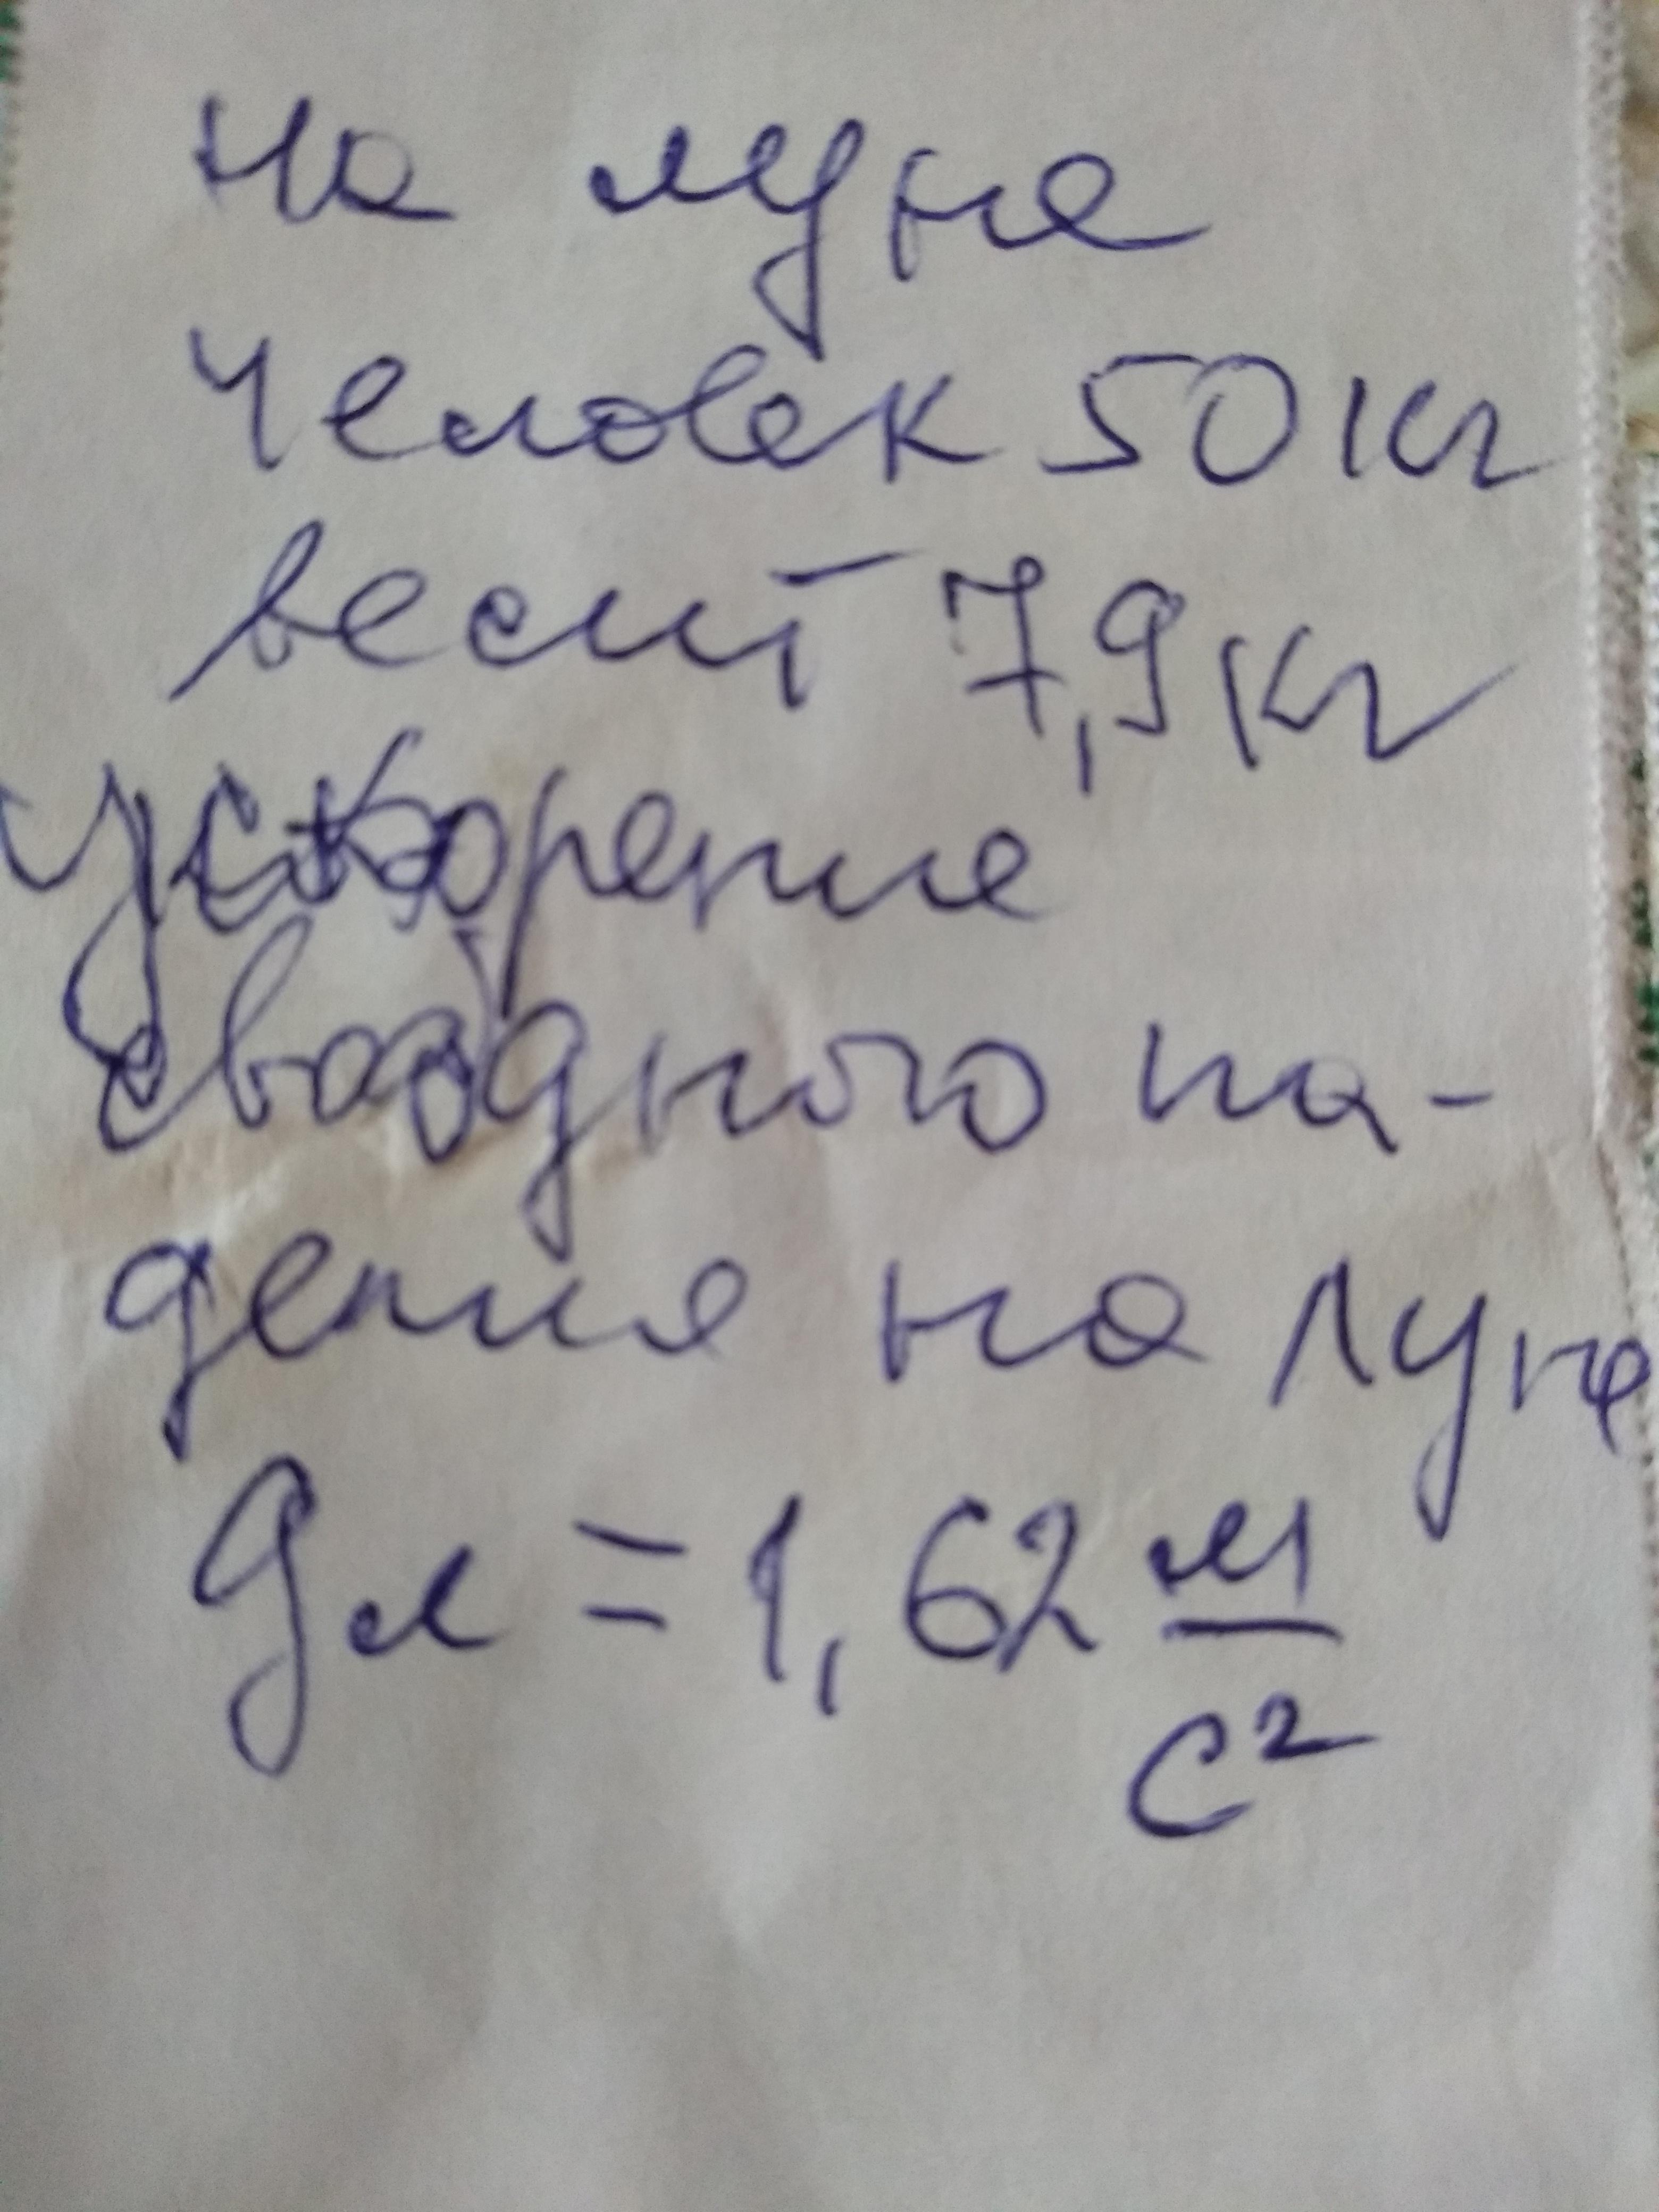 на луне
человек 50 кг
весит 7,9 кг
ускорение
свободного па-
дения на луне
gл = 1,62 м
с²